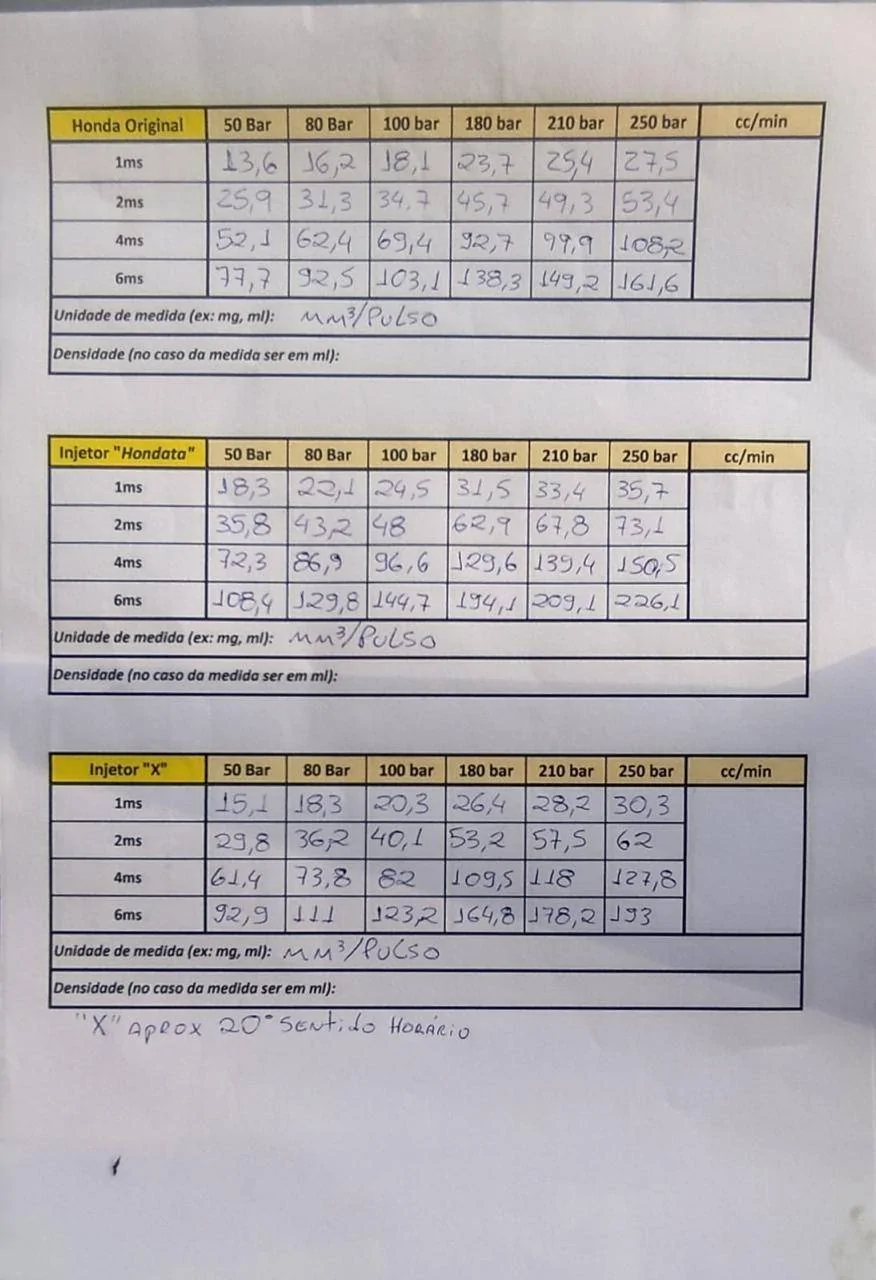 Honda Original 50 Bar 80 Bar 100 bar 180 bar 210 bar 250 bar cc/min
1ms 13,6 16,2 18,1 23,7 25,4 27,5
2ms 25,9 31,3 34,7 45,7 49,3 53,4
4ms 52,1 62,4 69,4 92,7 99,9 108,2
6ms 77,7 92,5 103,1 138,3 149,2 161,6
Unidade de medida (ex: mg, ml): MM³/PULSO
Densidade (no caso da medida ser em ml):
Injetor "Hondata" 50 Bar 80 Bar 100 bar 180 bar 210 bar 250 bar cc/min
1ms 18,3 22,1 24,5 31,5 33,4 35,7
2ms 35,8 43,2 48 62,9 67,8 73,1
4ms 72,3 86,9 96,6 129,6 139,4 150,5
6ms 108,4 129,8 144,7 194,1 209,1 226,1
Unidade de medida (ex: mg, ml): MM³/PULSO
Densidade (no caso da medida ser em ml):
Injetor "X" 50 Bar 80 Bar 100 bar 180 bar 210 bar 250 bar cc/min
1ms 15,1 18,3 20,3 26,4 28,2 30,3
2ms 29,8 36,2 40,1 53,2 57,5 62
4ms 61,4 73,8 82 109,5 118 127,8
6ms 92,9 111 123,2 164,8 178,2 193
Unidade de medida (ex: mg, ml): MM³/PULSO
Densidade (no caso da medida ser em ml):
"X" Aprox 20° SENtido HORÁRIO